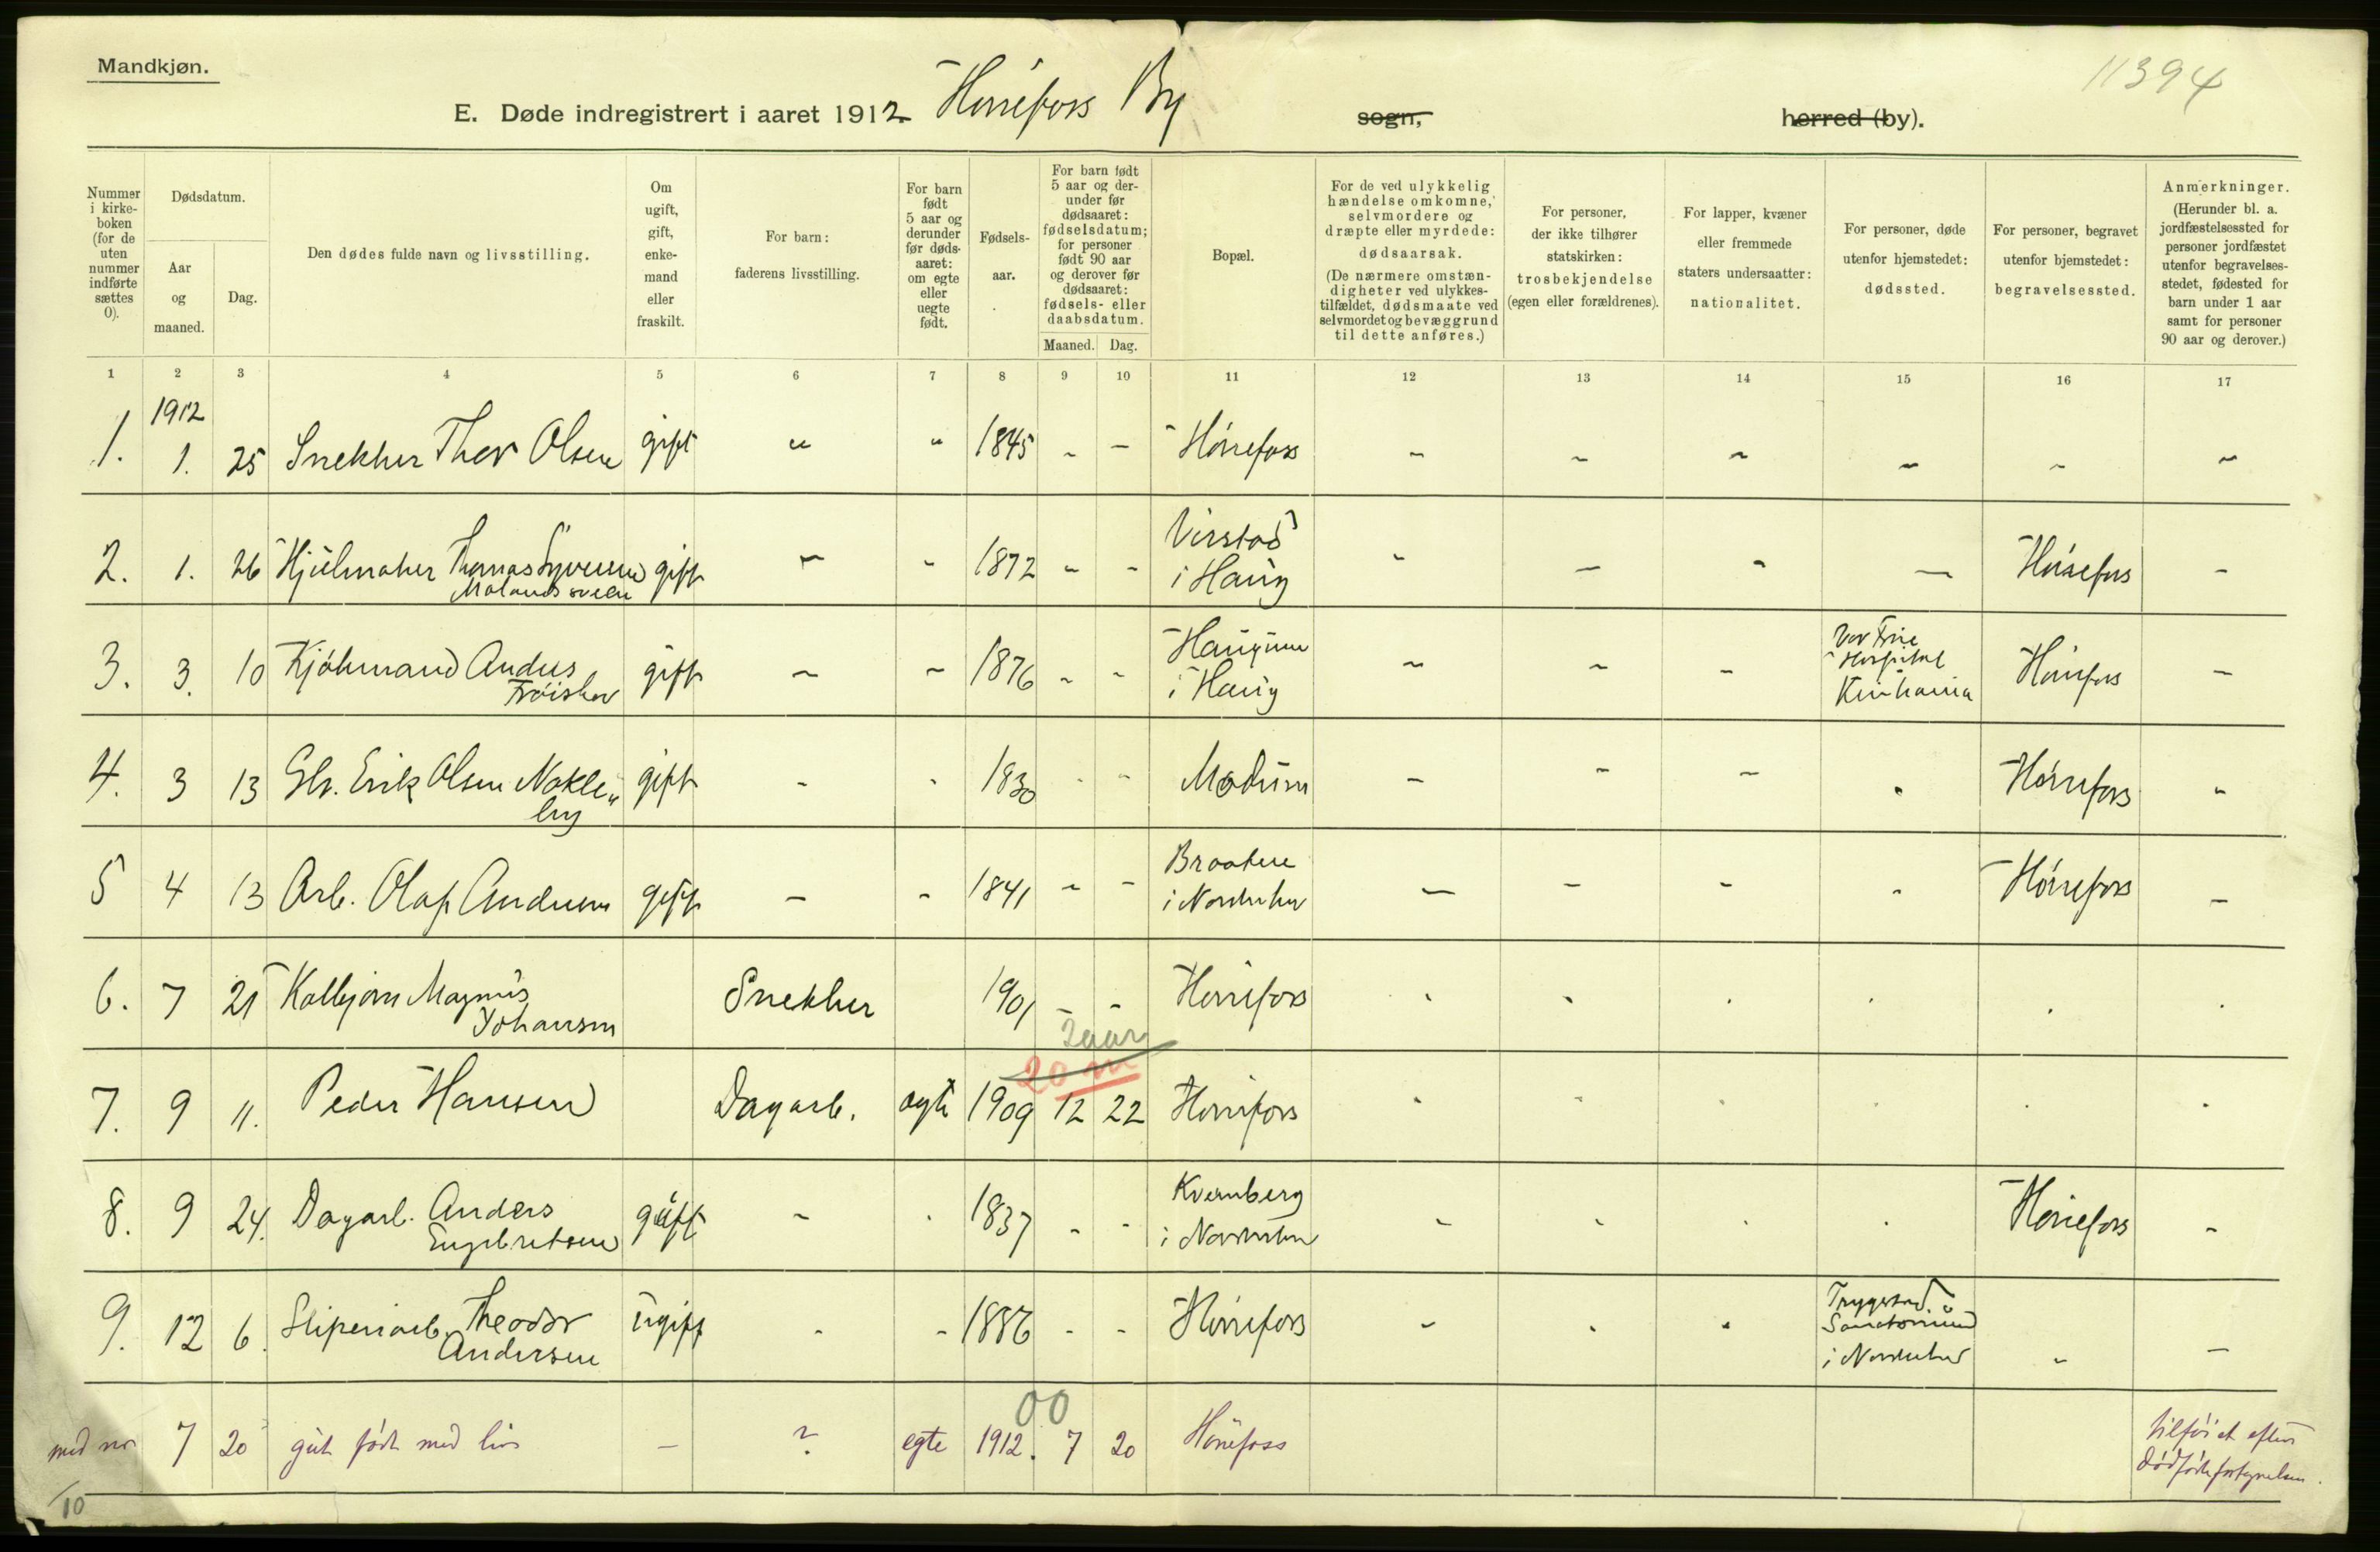 Mandkjøn.
11394
E. Døde indregistrert i aaret 1912. Hønefoss By sogn, herred (by).
Nummer i kirke-boken (for de uten nummer indførte sættes 0).
Dødsdatum.
Aar og maaned.
Dag.
Den dødes fulde navn og livsstilling.
Om ugift, gift, enke-mand eller fraskilt.
For barn: faderens livsstilling.
For barn født 5 aar og derunder før døds-aaret: om egte eller uegte født.
Fødsels-aar.
For barn født 5 aar og der-under før dødsaaret: fødselsdatum; for personer født 90 aar og derover før dødsaaret: fødsels- eller daabsdatum.
Maaned. Dag.
Bopæl.
For de ved ulykkelig hændelse omkomne, selvmordere og dræpte eller myrdede: dødsaarsak. (De nærmere omstæn-digheter ved ulykkes-tilfældet, dødsmaate ved selvmordet og bevæggrund til dette anføres.)
For personer, der ikke tilhører statskirken: trosbekjendelse (egen eller forældrenes).
For lapper, kvæner eller fremmede staters undersaatter: nationalitet.
For personer, døde utenfor hjemstedet: dødssted.
For personer, begravet utenfor hjemstedet: begravelsessted.
Anmerkninger. (Herunder bl. a. jordfæstelsessted for personer jordfæstet utenfor begravelses-stedet, fødested for barn under 1 aar samt for personer 90 aar og derover.)
1 2 3 4 5 6 7 8 9 10 11 12 13 14 15 16 17
1912
1. 1. 25 Snekker Thor Olsen gift " " 1845 - - Hønefoss - - - - - -
2. 1. 26 Hjulmaker Thomas Syversen gift - - 1872 - - Virstad i Haug - - - - Hønefoss -
3. 3. 10 Kjøbmand Anders Frøishov gift - - 1876 - - i Haug - - - Vor Frue Hospital Kristiania Hønefoss -
4. 3 13 Erik Olsen Nakle"by gift - - 1830 - - Modum - - - - Hønefoss "
5 4 13 Arb. Olaf Andersen gift - - 1841 - - Braaten i Norderhov - - - - Hønefoss -
6. 7 21 Kolbjørn Magnus Johansen Snekker 1901 - - Hønefoss
2 aar
20 m
7. 9 11. Peder Hansen Dagarb. egte 1909 12 22 Hønefoss
8. 9 24. Dagarb. Anders Engebretsen gift - - 1837 - - Kvernberg i Norderhov - - - - Hønefoss -
9. 12 6. Sliperiarb. Theodor Andersen ugift - - 1886 - - Hønefoss - - - Trygstad Sanatorium i Norderhov - -
00
med no 7 20 gut født med liv - ? egte 1912. 7 20 Hønefoss tilføiet efter dødfødtfortegnelsen.
10